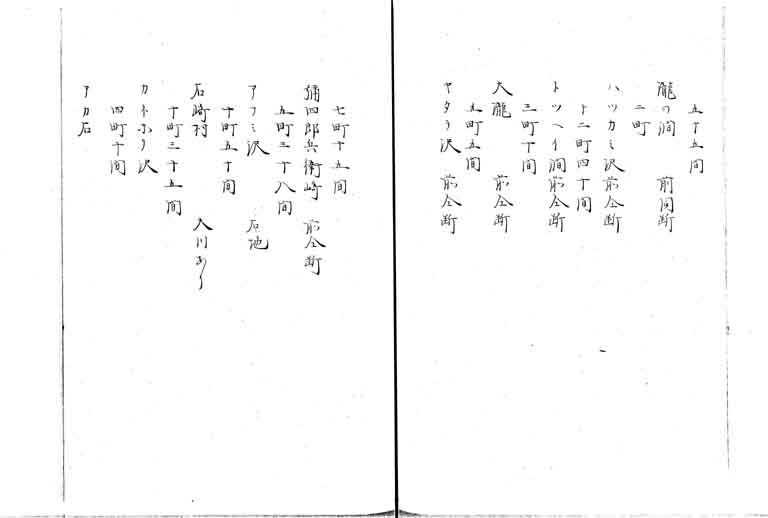 五丁五間
瀧の澗　前同断
二町
ハツカミ沢　前仝断
十二町四十間
トツヘイ澗　前仝断
三町十間
大瀧　前仝断
五町五間
ヤタラ沢　前仝断
七町十五間
彌四郎兵衛崎　前仝断
五町三十八間
アフミ沢　石地
十町五十間
石崎村　大川あり
十町三十五間
カネホリ沢
四町十間
アカ石